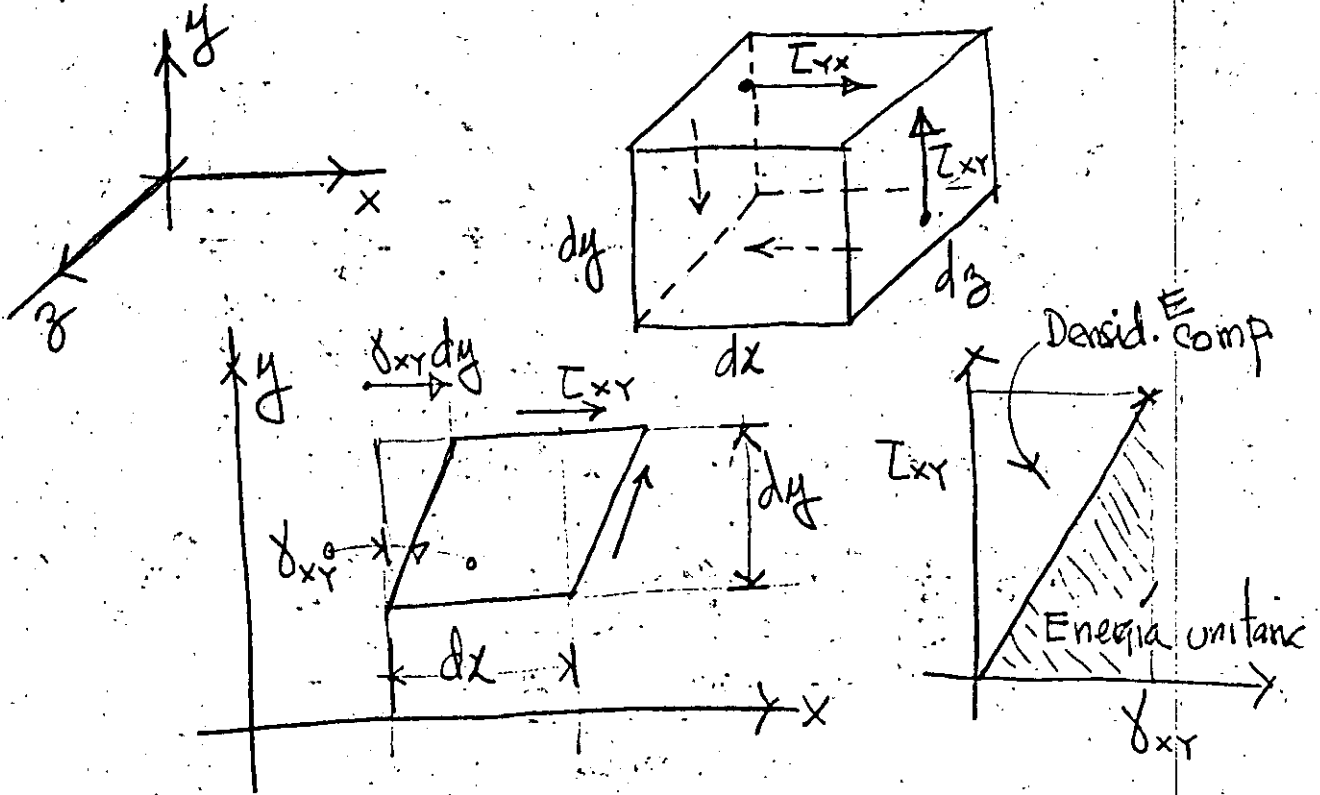 y
x
z
τYX
τXY
dy
dz
dx
y
γXY dy
τXY
dy
γXY
dx
x
Densid. E comp
τXY
Energia unitaria
γXY